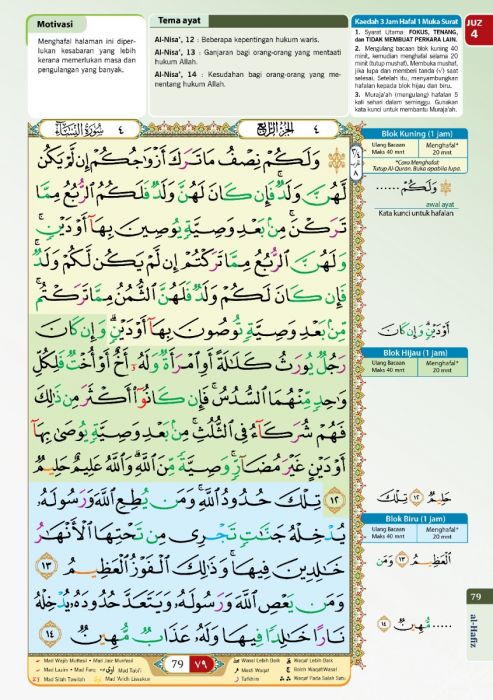 Motivasi
Menghafal halaman ini diper-
lukan kesabaran yang lebih
kerana memerlukan masa dan
pengulangan yang banyak.
Tema ayat
Al-Nisa', 12 : Beberapa kepentingan hukum waris.
Al-Nisa', 13 : Ganjaran bagi orang-orang yang mentaati
hukum Allah.
Al-Nisa', 14 : Kesudahan bagi orang-orang yang me-
nentang hukum Allah.
Kaedah 3 Jam Hafal 1 Muka Surat
1. Syarat Utama: FOKUS, TENANG,
dan TIDAK MEMBUAT PERKARA LAIN.
2. Mengulang bacaan blok kuning 40
minit, kemudian menghafal selama 20
minit (tutup mushaf). Membuka mushaf,
jika lupa dan memberi tanda (√) saat
selesai. Setelah itu, menyambungkan
hafalan kepada blok hijau dan biru.
3. Muraja'ah (mengulang) hafalan 5
kali sehari dalam seminggu. Gunakan
kata kunci untuk membantu Muraja'ah.
JUZ
4
٤ الجزء الرابع
سورة النساء ٤
۞ وَلَكُمْ نِصْفُ مَا تَرَكَ أَزْوَٰجُكُمْ إِن لَّمْ يَكُن
لَّهُنَّ وَلَدٌ ۚ فَإِن كَانَ لَهُنَّ وَلَدٌ فَلَكُمُ ٱلرُّبُعُ مِمَّا
تَرَكْنَ ۚ مِنۢ بَعْدِ وَصِيَّةٍ يُوصِينَ بِهَآ أَوْ دَيْنٍ ۚ
وَلَهُنَّ ٱلرُّبُعُ مِمَّا تَرَكْتُمْ إِن لَّمْ يَكُن لَّكُمْ وَلَدٌ ۚ
فَإِن كَانَ لَكُمْ وَلَدٌ فَلَهُنَّ ٱلثُّمُنُ مِمَّا تَرَكْتُم ۚ
مِّنۢ بَعْدِ وَصِيَّةٍ تُوصُونَ بِهَآ أَوْ دَيْنٍ ۗ وَإِن كَانَ
رَجُلٌ يُورَثُ كَلَٰلَةً أَوِ ٱمْرَأَةٌ وَلَهُۥٓ أَخٌ أَوْ أُخْتٌ فَلِكُلِّ
وَٰحِدٍ مِّنْهُمَا ٱلسُّدُسُ ۚ فَإِن كَانُوٓا۟ أَكْثَرَ مِن ذَٰلِكَ
فَهُمْ شُرَكَآءُ فِى ٱلثُّلُثِ ۚ مِنۢ بَعْدِ وَصِيَّةٍ يُوصَىٰ بِهَآ
أَوْ دَيْنٍ غَيْرَ مُضَآرٍّ ۚ وَصِيَّةً مِّنَ ٱللَّهِ ۗ وَٱللَّهُ عَلِيمٌ حَلِيمٌ
١٢ تِلْكَ حُدُودُ ٱللَّهِ ۚ وَمَن يُطِعِ ٱللَّهَ وَرَسُولَهُۥ
يُدْخِلْهُ جَنَّٰتٍ تَجْرِى مِن تَحْتِهَا ٱلْأَنْهَٰرُ
خَٰلِدِينَ فِيهَا ۚ وَذَٰلِكَ ٱلْفَوْزُ ٱلْعَظِيمُ ١٣
وَمَن يَعْصِ ٱللَّهَ وَرَسُولَهُۥ وَيَتَعَدَّ حُدُودَهُۥ يُدْخِلْهُ
نَارًا خَٰلِدًا فِيهَا وَلَهُۥ عَذَابٌ مُّهِينٌ ١٤
Blok Kuning (1 jam)
Ulang Bacaan
Maks 40 mnt
Menghafal*
20 mnt
*Cara Menghafal:
Tutup Al-Quran. Buka apabila lupa.
۞ وَلَكُمْ ......
awal ayat
Kata kunci untuk hafalan
أَوْ دَيْنٍ ۗ وَإِن كَانَ
Blok Hijau (1 jam)
Ulang Bacaan
Maks 40 mnt
Menghafal*
20 mnt
حَلِيمٌ ١٢ تِلْكَ
Blok Biru (1 jam)
Ulang Bacaan
Maks 40 mnt
Menghafal*
20 mnt
ٱلْعَظِيمُ ١٣ وَمَن
...... مُّهِينٌ ١٤
79
al-Hafiz
79 ٧٩
Mad Wajib Muttasil • Mad Jaiz Munfasil
Mad Silah Tawilah
Tafkhim
Waqaf Lebih Baik
Boleh Waqaf/Wasal
Waqaf Pada Salah Satu